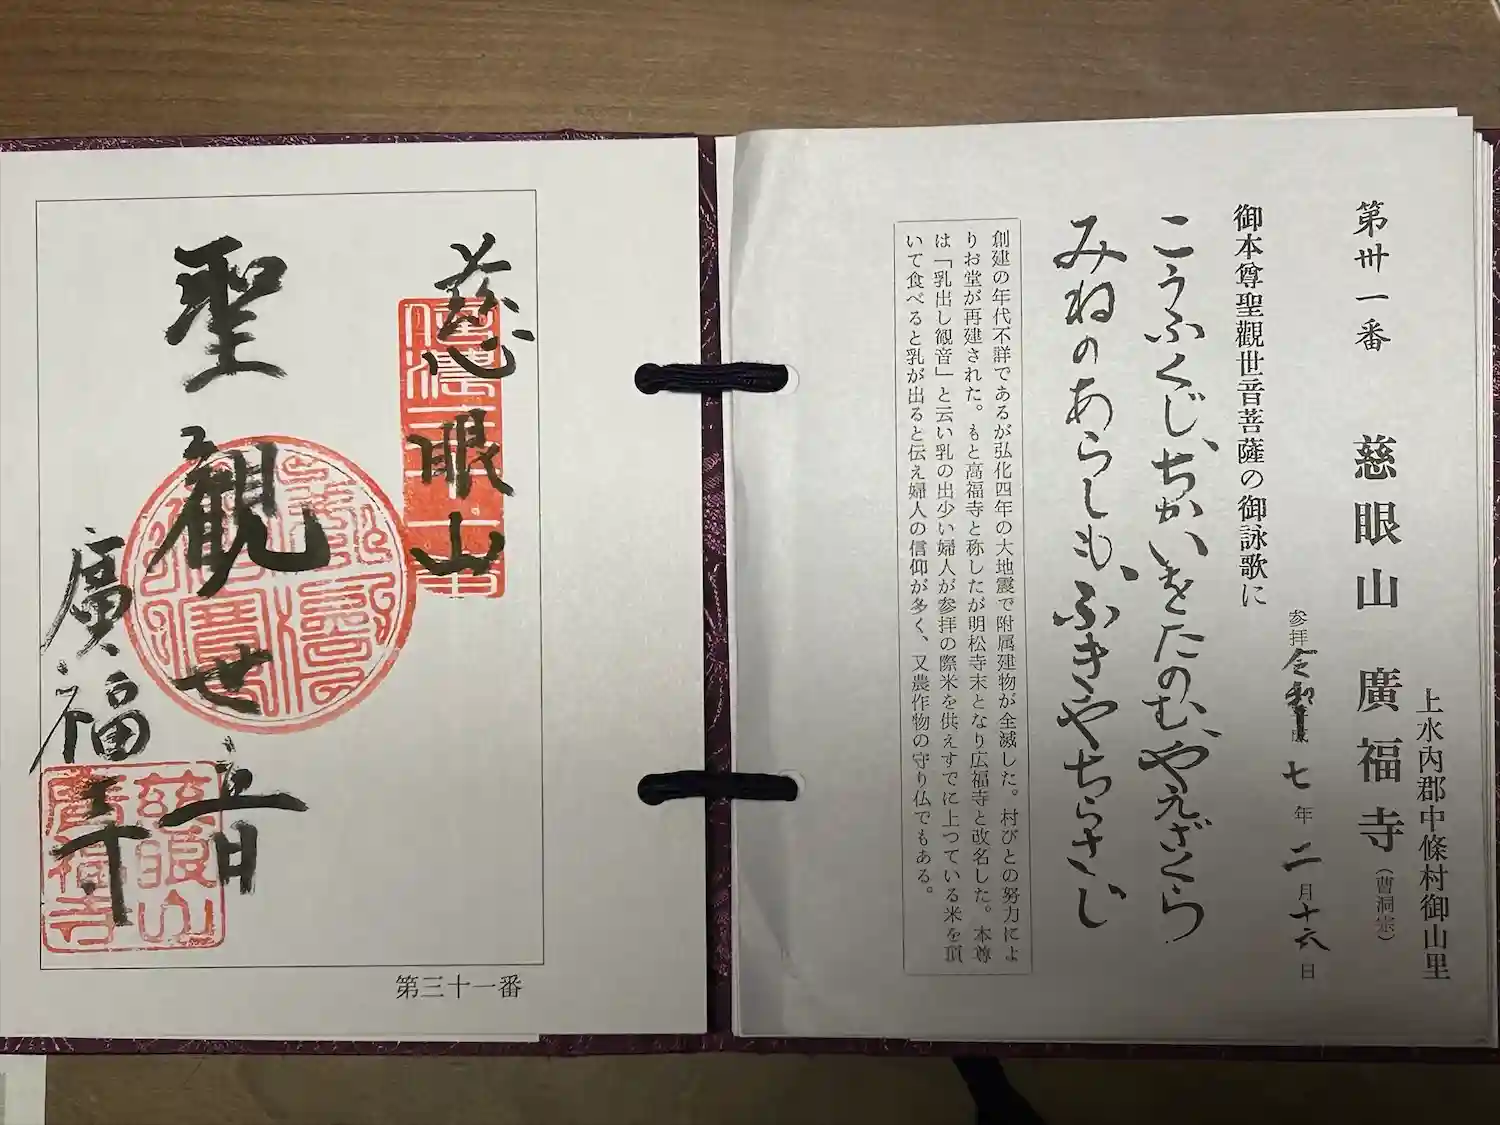 第卅一番 慈眼山 廣福寺(曹洞宗)
上水内郡中條村御山里
参拝 令和 七年 二月十六日
御本尊聖觀世音菩薩の御詠歌に
こうふくじ、ちかいをたのむ、やえざくら
みねのあらしも、ふきやちらさじ
創建の年代不詳であるが弘化四年の大地震で附属建物が全滅した。村びとの努力によ
りお堂が再建された。もと高福寺と称したが明松寺末となり広福寺と改名した。本尊
は「乳出し観音」と云い乳の出少い婦人が参拝の際米を供えすでに上つている米を頂
いて食べると乳が出ると伝え婦人の信仰が多く、又農作物の守り仏でもある。
慈眼山
聖観世音
廣福寺
慈眼山
廣福寺
第三十一番